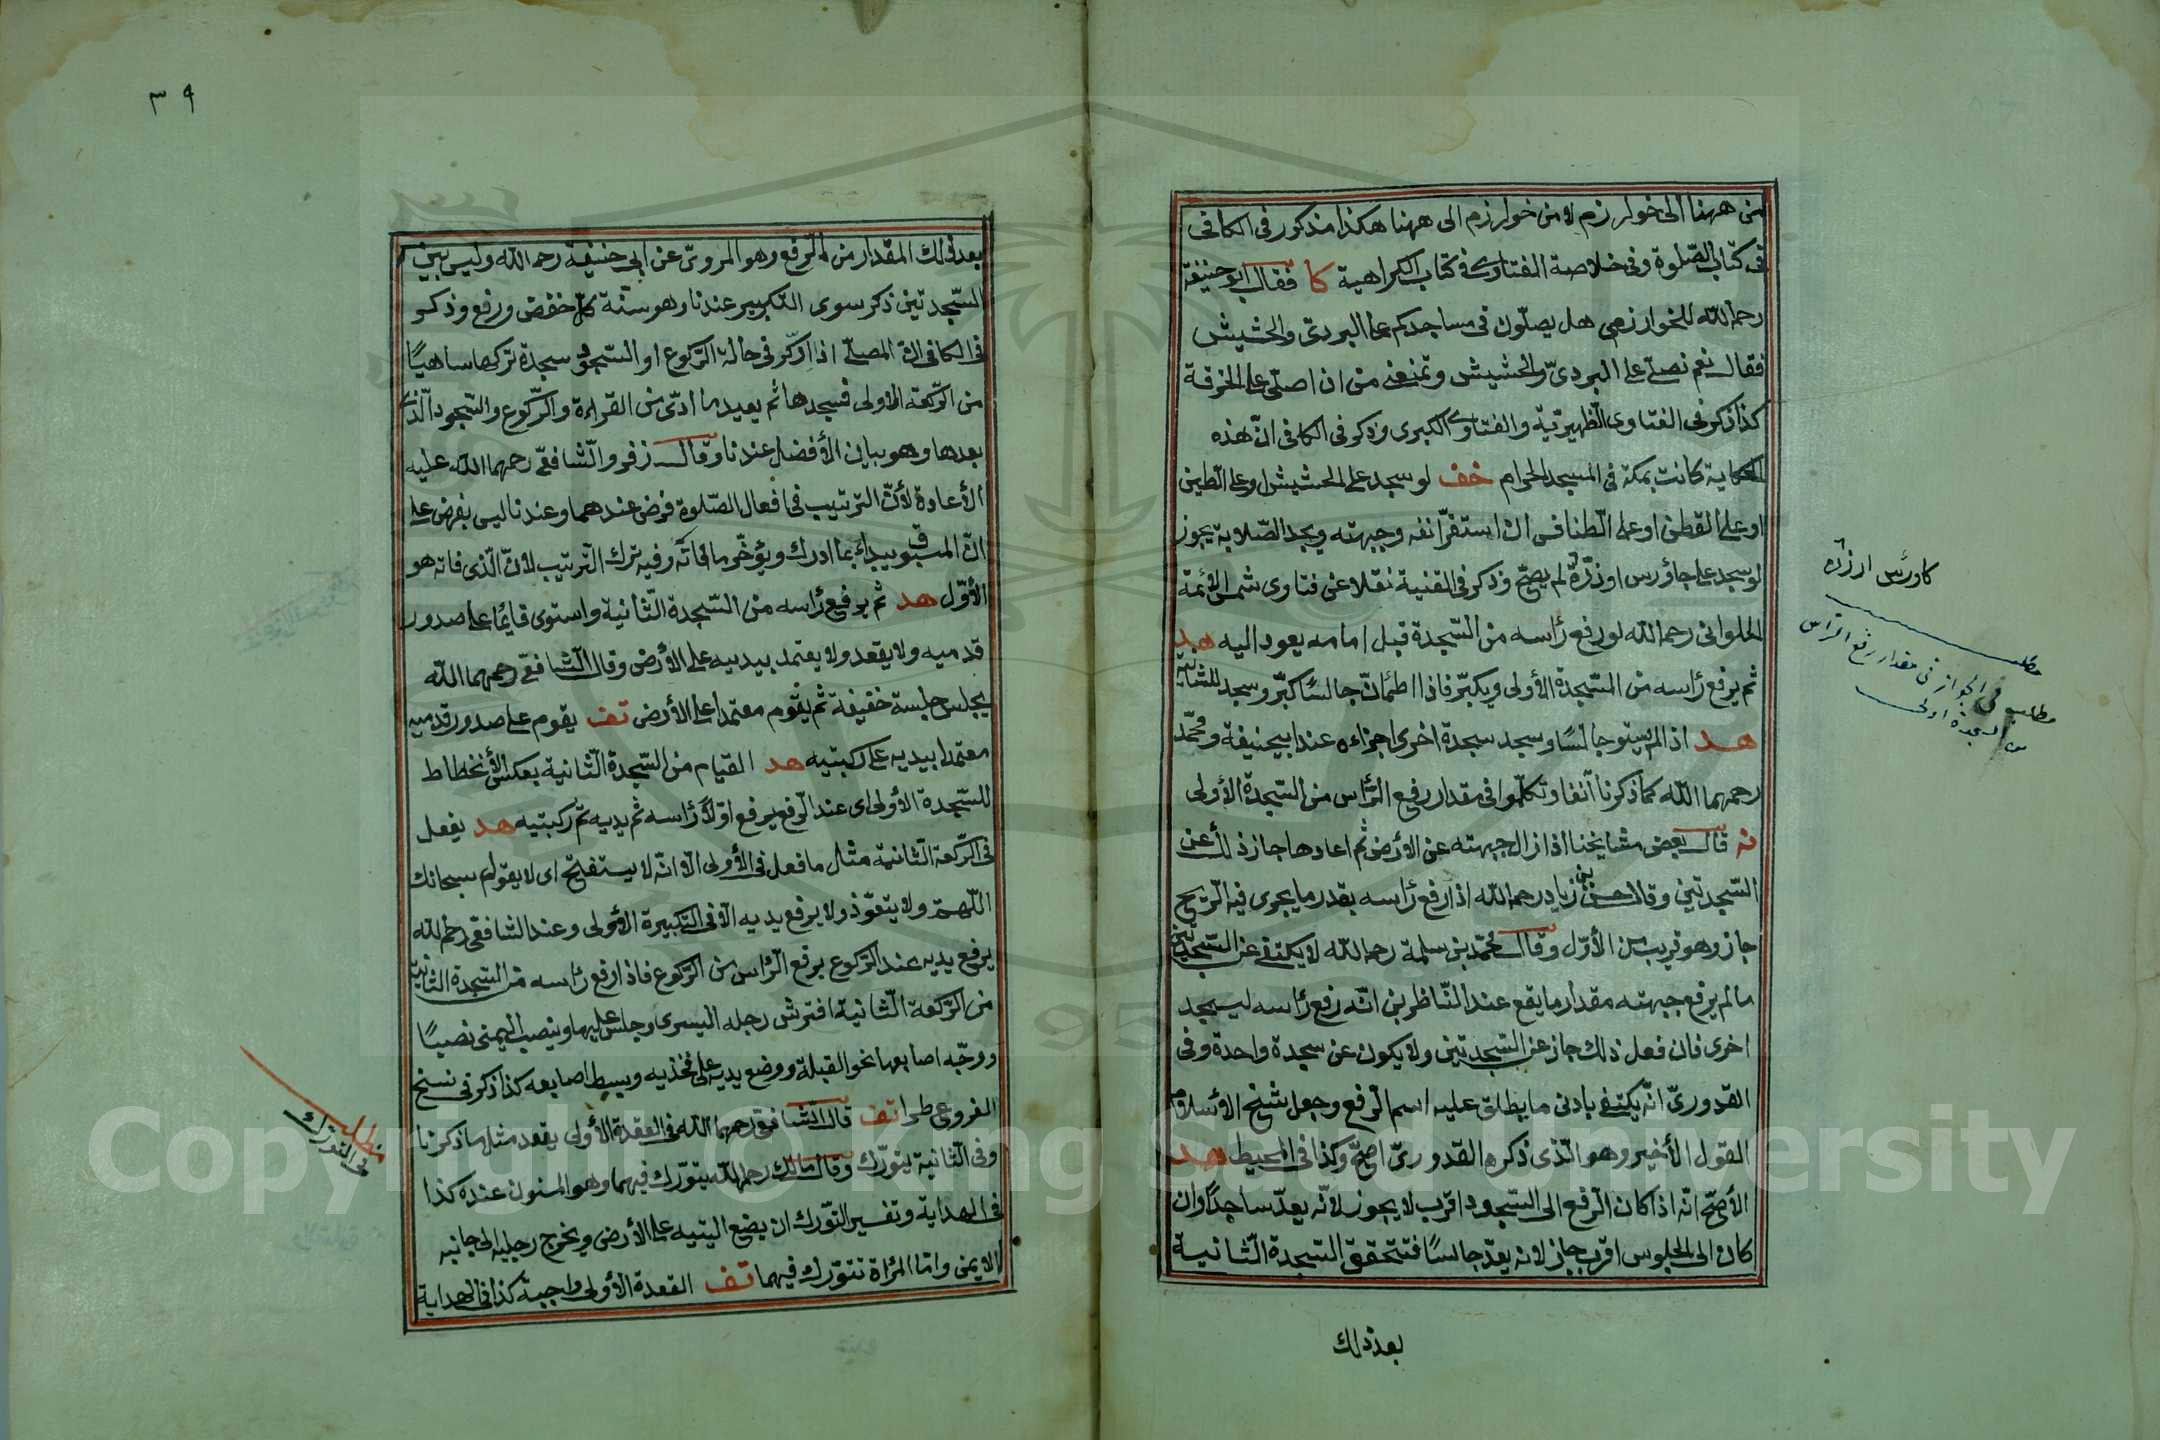 من ههنا الى خوارزم لا من خوارزم الى ههنا هكذا مذكور فى الكافى
فى كتاب الصّلوة وفى خلاصة الفتاوى فى كتاب الكراهية كا فقال ابو حنيفة
رحمه الله للخوارزمى هل يصلّون فى مساجدكم على البردىّ والحشيش
فقال نعم نصلّى على البردىّ والحشيش وتمنعنى من ان اصلّى على الخرقة
كذا ذكر فى الفتاوى الظّهيريّة والفتاوى الكبرى وذكر فى الكافى انّ هذه
الحكاية كانت بمكة فى المسجد الحرام خف لو سجد على الحشيش او على الطين
او على القطن او على الطنافس ان استقرّ انفه وجبهته ويجد الصّلابة يجوز
لو سجد على جاؤرس او ذرّة لم يصحّ وذكر فى القنية نقلا عن فتاوى شمس الائمة
الحلوانى رحمه الله لو رفع رأسه من السّجدة قبل امامه يعود اليه هد
ثم يرفع رأسه من السّجدة الأولى ويكبّر فاذا اطمأنّ جالسًا كبّر وسجد للثانية
هد اذا لم يستو جالسًا وسجد سجدة اخرى اجزاءه عند ابيحنيفة ومحمّد
رحمهما الله كما ذكرنا آنفا وتكلّموا فى مقدار رفع الرّأس من السّجدة الأولى
نه قال بعض مشايخنا اذا زال جبهته عن الارض ثم اعادها جاز ذلك عن
السّجدتين وقال حسن بن زياد رحمه الله اذا رفع رأسه بقدر ما يجرى فيه الرّيح
جاز وهو قريب من الأوّل وقال محمّد بن سلمة رحمه الله لا يكتفى عن السّجدتين
ما لم يرفع جبهته مقدار ما يقع عند النّاظرين انّه رفع رأسه ليسجد
اخرى فان فعل ذلك جاز عن السّجدتين ولا يكون عن سجدة واحدة وفى
القدورىّ انّه يكتفى بادنى ما يطلق عليه اسم الرفع وجعل شيخ الأسلام
القول الأخير وهو الّذى ذكره القدورىّ اصحّ وكذا فى المحيط هد
الأصحّ انّه اذا كان الرّفع الى السّجود اقرب لا يجوز لانّه يعدّ ساجدًا وان
كان الى الجلوس اقرب جاز لانه يعدّ جالسًا فتتحقق السّجدة الثّانية
بعد ذلك
كاورس ارزن
مطلب فى الجواز فى مقدار رفع الرأس
من السجدة اولى
٣٩
بعد ذلك المقدار من الرّفع وهو المروىّ عن ابى حنيفة رحمه الله وليس بين
السّجدتين ذكر سوى التكبير عندنا وهو سنّة كلّ خفض ورفع وذكر
فى الكافى انّ المصلّى اذا ذكّر فى حالة الرّكوع او السّجود سجدة تركها ساهيًا
من الرّكعة الأولى فسجدها ثم يعيد ما ادّى من القراءة والرّكوع والسّجود الّذى
بعدها وهو بيان الأفضل عندنا وقال زفر والشّافعى رحمهما الله عليه
الأعادة لأنّ الترتيب فى افعال الصّلوة فرض عندهما وعندنا ليس بفرض على
انّ المسبوق يبدأ بما ادرك ويؤخّر ما فاته وفيه ترك الترتيب لانّ الّذى فاته هو
الأوّل هد ثم يرفع رأسه من السّجدة الثّانية واستوى قائما على صدور
قدميه ولا يقعد ولا يعتمد بيديه على الأرض وقال الشافعى رحمهما الله
يجلس جلسة خفيفة ثم يقوم معتمدا على الأرض تف يقوم على صدور قدميه
معتمدا بيديه على ركبتيه هد القيام من السّجدة الثّانية بعكس الأنحطاط
للسّجدة الأولى اى عند الرّفع يرفع اوّلا رأسه ثم يديه ثمّ ركبتيه هد يفعل
فى الرّكعة الثانية مثل ما فعل فى الأولى الّا انّه لا يستفتح اى لا يقول سبحانك
اللّهمّ ولا يتعوّذ ولا يرفع يديه الّا فى التّكبيرة الأولى وعند الشّافعى رحمه الله
يرفع يديه عند الرّكوع يرفع الرّأس من الرّكوع فاذا رفع رأسه من السّجدة الثانية
من الرّكعة الثّانية افترش رجله اليسرى وجلس عليها وينصب اليمنى نصبًا
ووجّه اصابعها نحو القبلة ووضع يديه على فخذيه وبسط اصابعه كذا ذكر فى نسخ
الفروعى طرا تف قال الشّافعى رحمهما الله فى القعدة الأولى يقعد مثل ما ذكرنا
وفى الثّانية يتورّك وقال مالك رحمه الله يتورّك فيهما وهو المسنون عنده كذا
فى الهداية وتفسير التورّك ان يضع اليتيه على الأرض ويخرج رجليه الى جانبه
الايمن وامّا المرأة تتورّك فيهما تف القعدة الأولى واجبة كذا فى الهداية
مطلب
فى التورك
Copyright © King Saud University